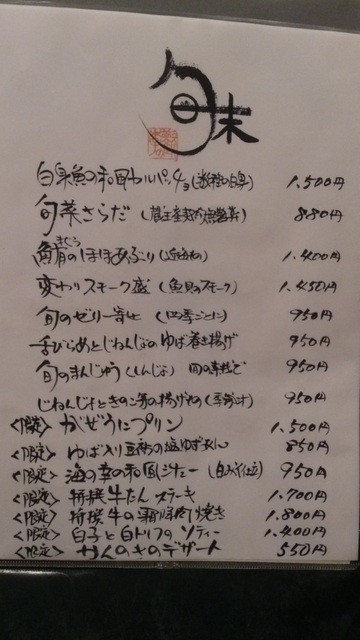 旬味
白身魚の和風カルパッチョ 1.500円
旬菜さらだ 880円
まぐろ
鮪のほほあぶり 1.400円
変わりスモーク盛(魚貝のスモーク) 1.450円
旬のゼリー寄せ(四季ごとに) 950円
舌びらめとじねんじょのゆば巻き揚げ 950円
旬のまんじゅう(しんじょ) 950円
じねんじょときのこ 950円
<限定>がぜうにプリン 1.500円
<限定>ゆば入り豆腐の塩ゆずあん 850円
<限定>海の幸の和風シチュー(白みそ仕立) 950円
<限定>特撰牛たんステーキ 1.700円
<限定>特撰牛の霜降肉焼き 1.800円
<限定>白子と白トリフのソテー 1.400円
<限定>かんのきのデザート 550円